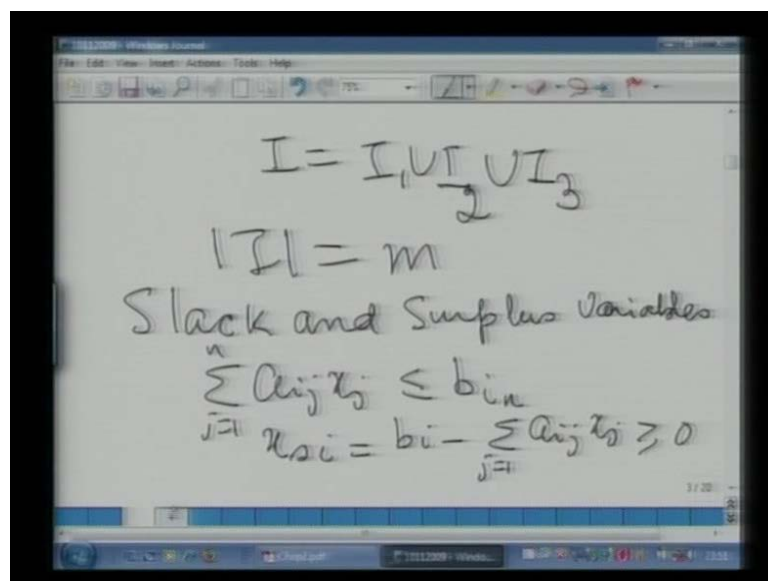 10112009 - Windows Journal
File Edit View Insert Actions Tools Help
75%
I = I₁ ∪ I₂ ∪ I₃
|I| = m
Slack and Surplus Variables
n
∑ aᵢⱼ xⱼ ≤ bᵢ
j=1
n
xₛᵢ = bᵢ - ∑ aᵢⱼ xⱼ ≥ 0
j=1
3 / 20
10112009 - Windo...